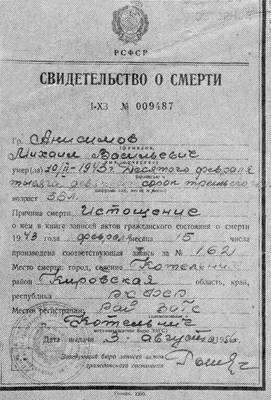 РСФСР
СВИДЕТЕЛЬСТВО О СМЕРТИ
I-ХЗ № 009487
Гр. Анисимов
(фамилия,
Михаил Васильевич
умер(ла) 10/II-1943г Десятого февраля
тысяча девятьсот сорок третьего
возраст 33л.
Причина смерти Истощение
о чем в книге записей актов гражданского состояния о смерти
1943 года февраля месяца 15 числа
произведена соответствующая запись за № 162
Место смерти: город, селение Котельнич
район Кировская область, край,
республика РСФСР
Место регистрации Рай ЗАГС
Котельнич
Дата выдачи 3 августа 195 г.
Заведующий бюро записей актов
гражданского состояния